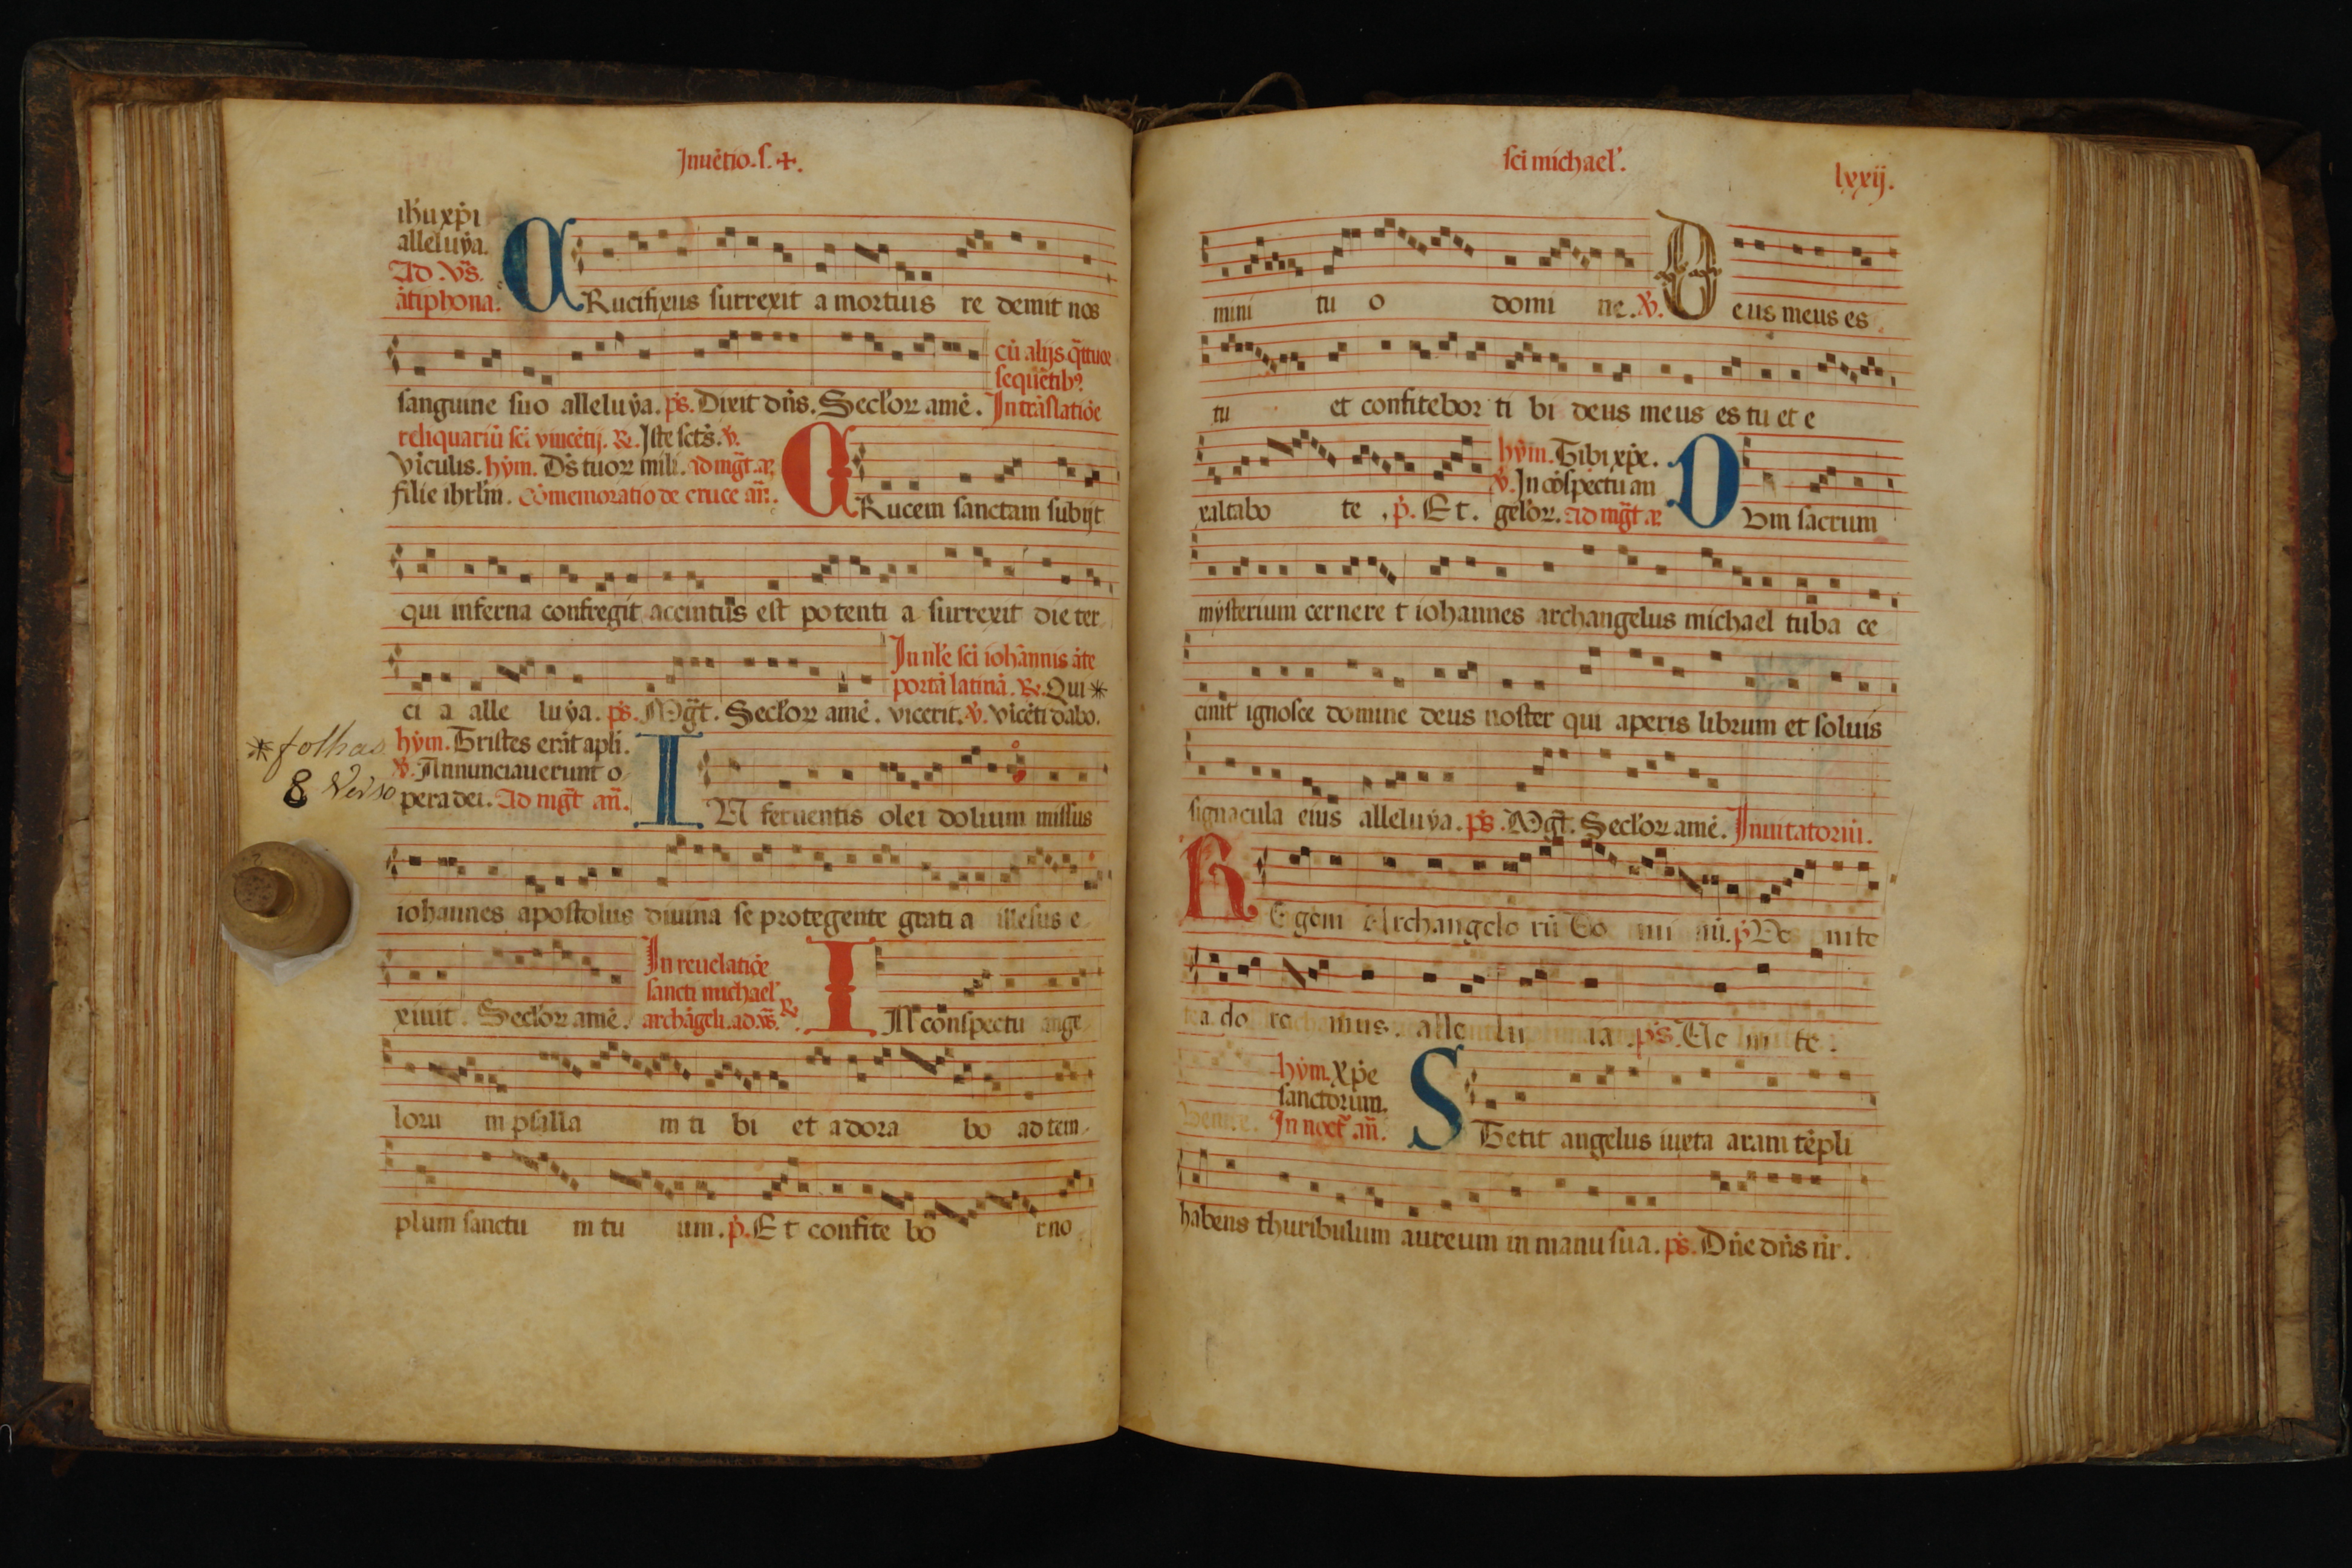 Jnuẽtio. s. +.
ihũ xp̃i
alleluya.
Ad. Vs̃.
ãtiphona.
CRucifixus surrexit a mortuis re demit nos
sanguine suo alleluya. ps̃. Dixit dñs. Secloꝝ amẽ.
cũ alijs q̃ttuor
sequẽtibꝰ.
In trãslatiõe
reliquariũ sc̃i vincẽtij. ꝶ. Iste sc̃ts. ℣.
Viculis. hym̃. Ds̃ tuoꝝ mili. ad mg̃t. añ.
filie ihrl̃m. Cõmemoratio de cruce añ.
CRucem sanctam subijt
qui inferna confregit accinctus est potenti a surrexit die ter
ci a alle luya. ps̃. Mg̃t. Secloꝝ amẽ.
In nl̃e sc̃i iohãnnis ãte
portã latinã. ꝶ. Qui *
vicerit. ℣. Vicẽti dabo.
* folhas
8 Verso
hym̃. Tristes erãt apl̃i.
℣. Annunciauerunt o
pera dei. Ad mg̃t añ.
IN feruentis olei dolium missus
iohannes apostolus diuina se protegente grati a illesus e
xiuit. Secloꝝ amẽ.
In reuelatiõe
sancti michael'
archãgeli. ad. vs̃. ꝶ.
IN conspectu ange
loru m psalla m ti bi et adora bo ad tem
plum sanctu m tu um. p̃. Et confite bo r no
sc̃i michael'.
lxxij.
mini tu o domi ne. ℣. Deus meus es
tu et confitebor ti bi deus meus es tu et e
xaltabo te. p̃. Et.
hym̃. Tibi xp̃e.
℣. In cõspectu an
geloꝝ. ad mg̃t. añ
DVm sacrum
mysterium cernere t iohannes archangelus michael tuba ce
cinit ignosce domine deus noster qui aperis librum et soluis
signacula eius alleluya. ps̃. Mg̃t. Secloꝝ amẽ. Inuitatoriũ.
REgem Archangelo rũ Do mi nũ. p̃ Ve nite
a do re mus. alle lu ia. ps̃. Ve ni te.
hym̃. Xp̃e
sanctorum.
In noct̃. añ.
STetit angelus iuxta aram tẽpli
habens thuribulum aureum in manu sua. ps̃. Dñe dñs nr̃.